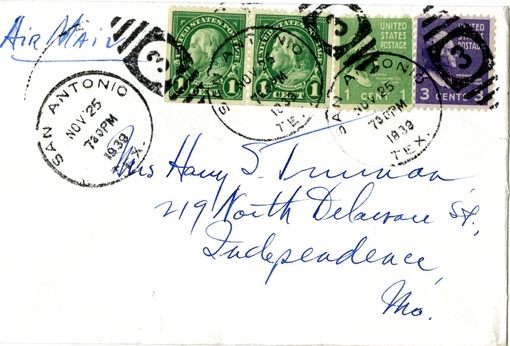 Air Mail
UNITED STATES POSTAGE
1 CENT 1
UNITED STATES POSTAGE
1 CENT 1
UNITED STATES POSTAGE
1 CENT 1
3 CENTS 3
3
3
3
SAN ANTONIO
NOV 25
730PM
1939
TEX.
NOV 25
730PM
TEX.
SAN ANTONIO
NOV 25
730PM
1939
TEX.
Mrs Harry S. Truman
219 North Delaware St.,
Independence,
Mo.